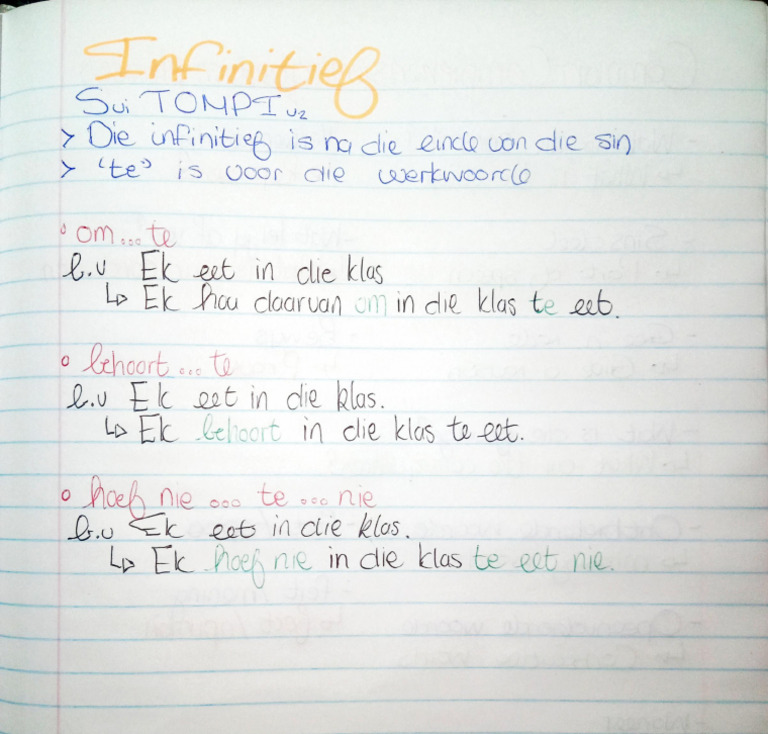 Infinitief
S vi TOMPI v2
> Die infinitief is na die einde van die sin
> 'te' is voor die werkwoorde
om...te
b.v Ek eet in die klas
↳ Ek hou daarvan om in die klas te eet.
behoort...te
b.v Ek eet in die klas.
↳ Ek behoort in die klas te eet.
hoef nie ... te ... nie
b.v Ek eet in die klas.
↳ Ek hoef nie in die klas te eet nie.